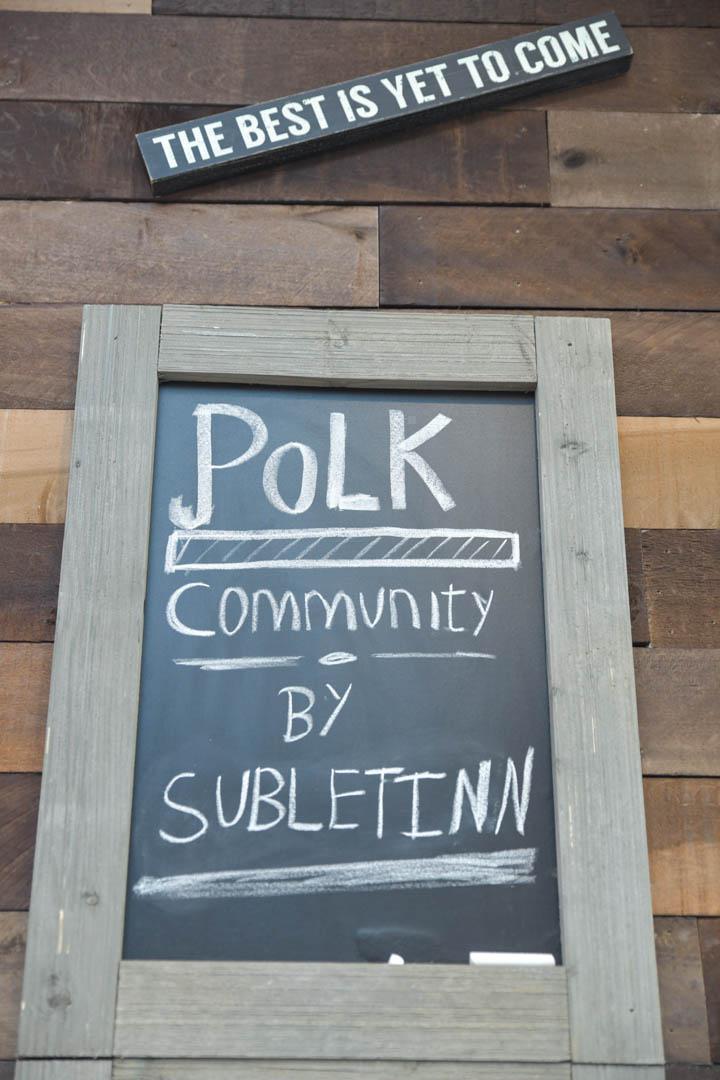 THE BEST IS YET TO COME
POLK
COMMUNITY
BY
SUBLETINN